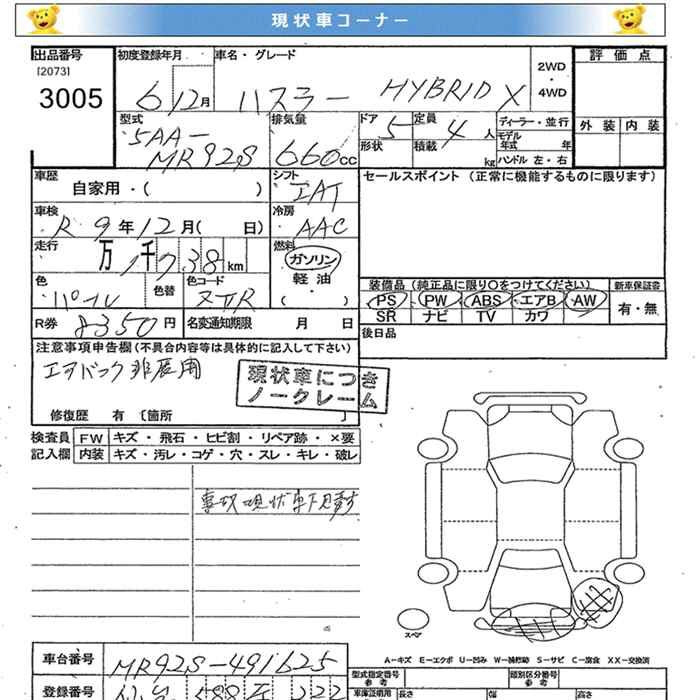 現状車コーナー
出品番号
[2073]
3005
初度登録年月
6 12月
車名・グレード
ハスラー HYBRID X
2WD
・
4WD
評価点
外装 内装
型式
5AA-
MR92S
排気量
660cc
ドア
5
定員
4人
ディーラー・並行
モデル年式 年
形状
積載 kg
ハンドル 左・右
車歴
自家用・( )
シフト
IAT
セールスポイント (正常に機能するものに限ります)
車検
R 9年12月( 日)
冷房
AAC
走行
万 千 km
燃料
ガソリン
軽油
・( )
色
パール
色替
色コード
装備品 (純正品に限り○をつけてください)
新車保証書
PS PW ABS エアB AW
有・無
SR ナビ TV カワ
R券
8350円
名変通知期限 月 日
後日品
注意事項申告欄(不具合内容等は具体的に記入して下さい)
エアバック非展開
現状車につき
ノークレーム
修復歴 有 〔箇所 〕
検査員
記入欄
FW キズ・飛石・ヒビ割・リペア跡・×要
内装 キズ・汚レ・コゲ・穴・スレ・キレ・破レ
スペア
A-キズ E-エクボ U-凹み W-補修跡 S-サビ C-腐食 XX-交換済
車台番号
MR92S-491625
登録番号
型式指定番号
参考
類別区分番号
参考
車庫証明用
長さ 幅 高さ